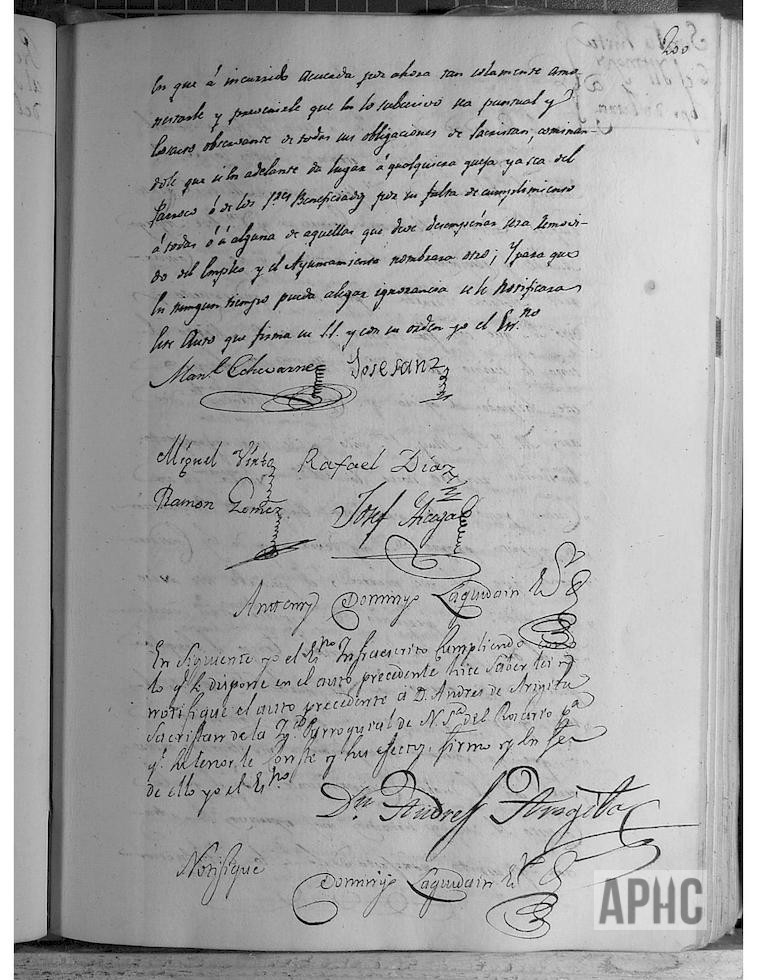 200
en que á incurrido acucada por ahora tan solamente amo-
nestarle y prevenirle que en lo subcesivo sea puntual y
exacto observante de todas sus obligaciones de Sacristan, cominan-
dole que si en adelante da lugar á qualquiera queja ya sea del
Parroco ó de los Sres Beneficiados por su falta de cumplimiento
á todas ó á alguna de aquellas que debe desempeñar sera removi-
do del Empleo y el Ayuntamiento nombrara otro; Y para que
en ningun tiempo pueda alegar ignorancia se le notificara
este Auto que firma su SS. y con su orden yo el Essno
Manl Echevarne Jose sanz
Miguel Virto Rafael Diaz
Ramon Gomez Josef
Antemi Domingo Laquidain Essno
En siguiente yo el Essno Infraescrito Cumpliendo con
lo qe se dispone en el auto precedente hice saber lei y
notifique el auto precedente á D. Andres de Arigita
Sacristan de la Iga Parroquial de N. Sra del Rosario pa
qe su tenor le conste y sus efectos, firmo y en fee
de ello yo el Essno
Dn Andres Arigita
Notifique
Domingo Laquidain Essno
APHC